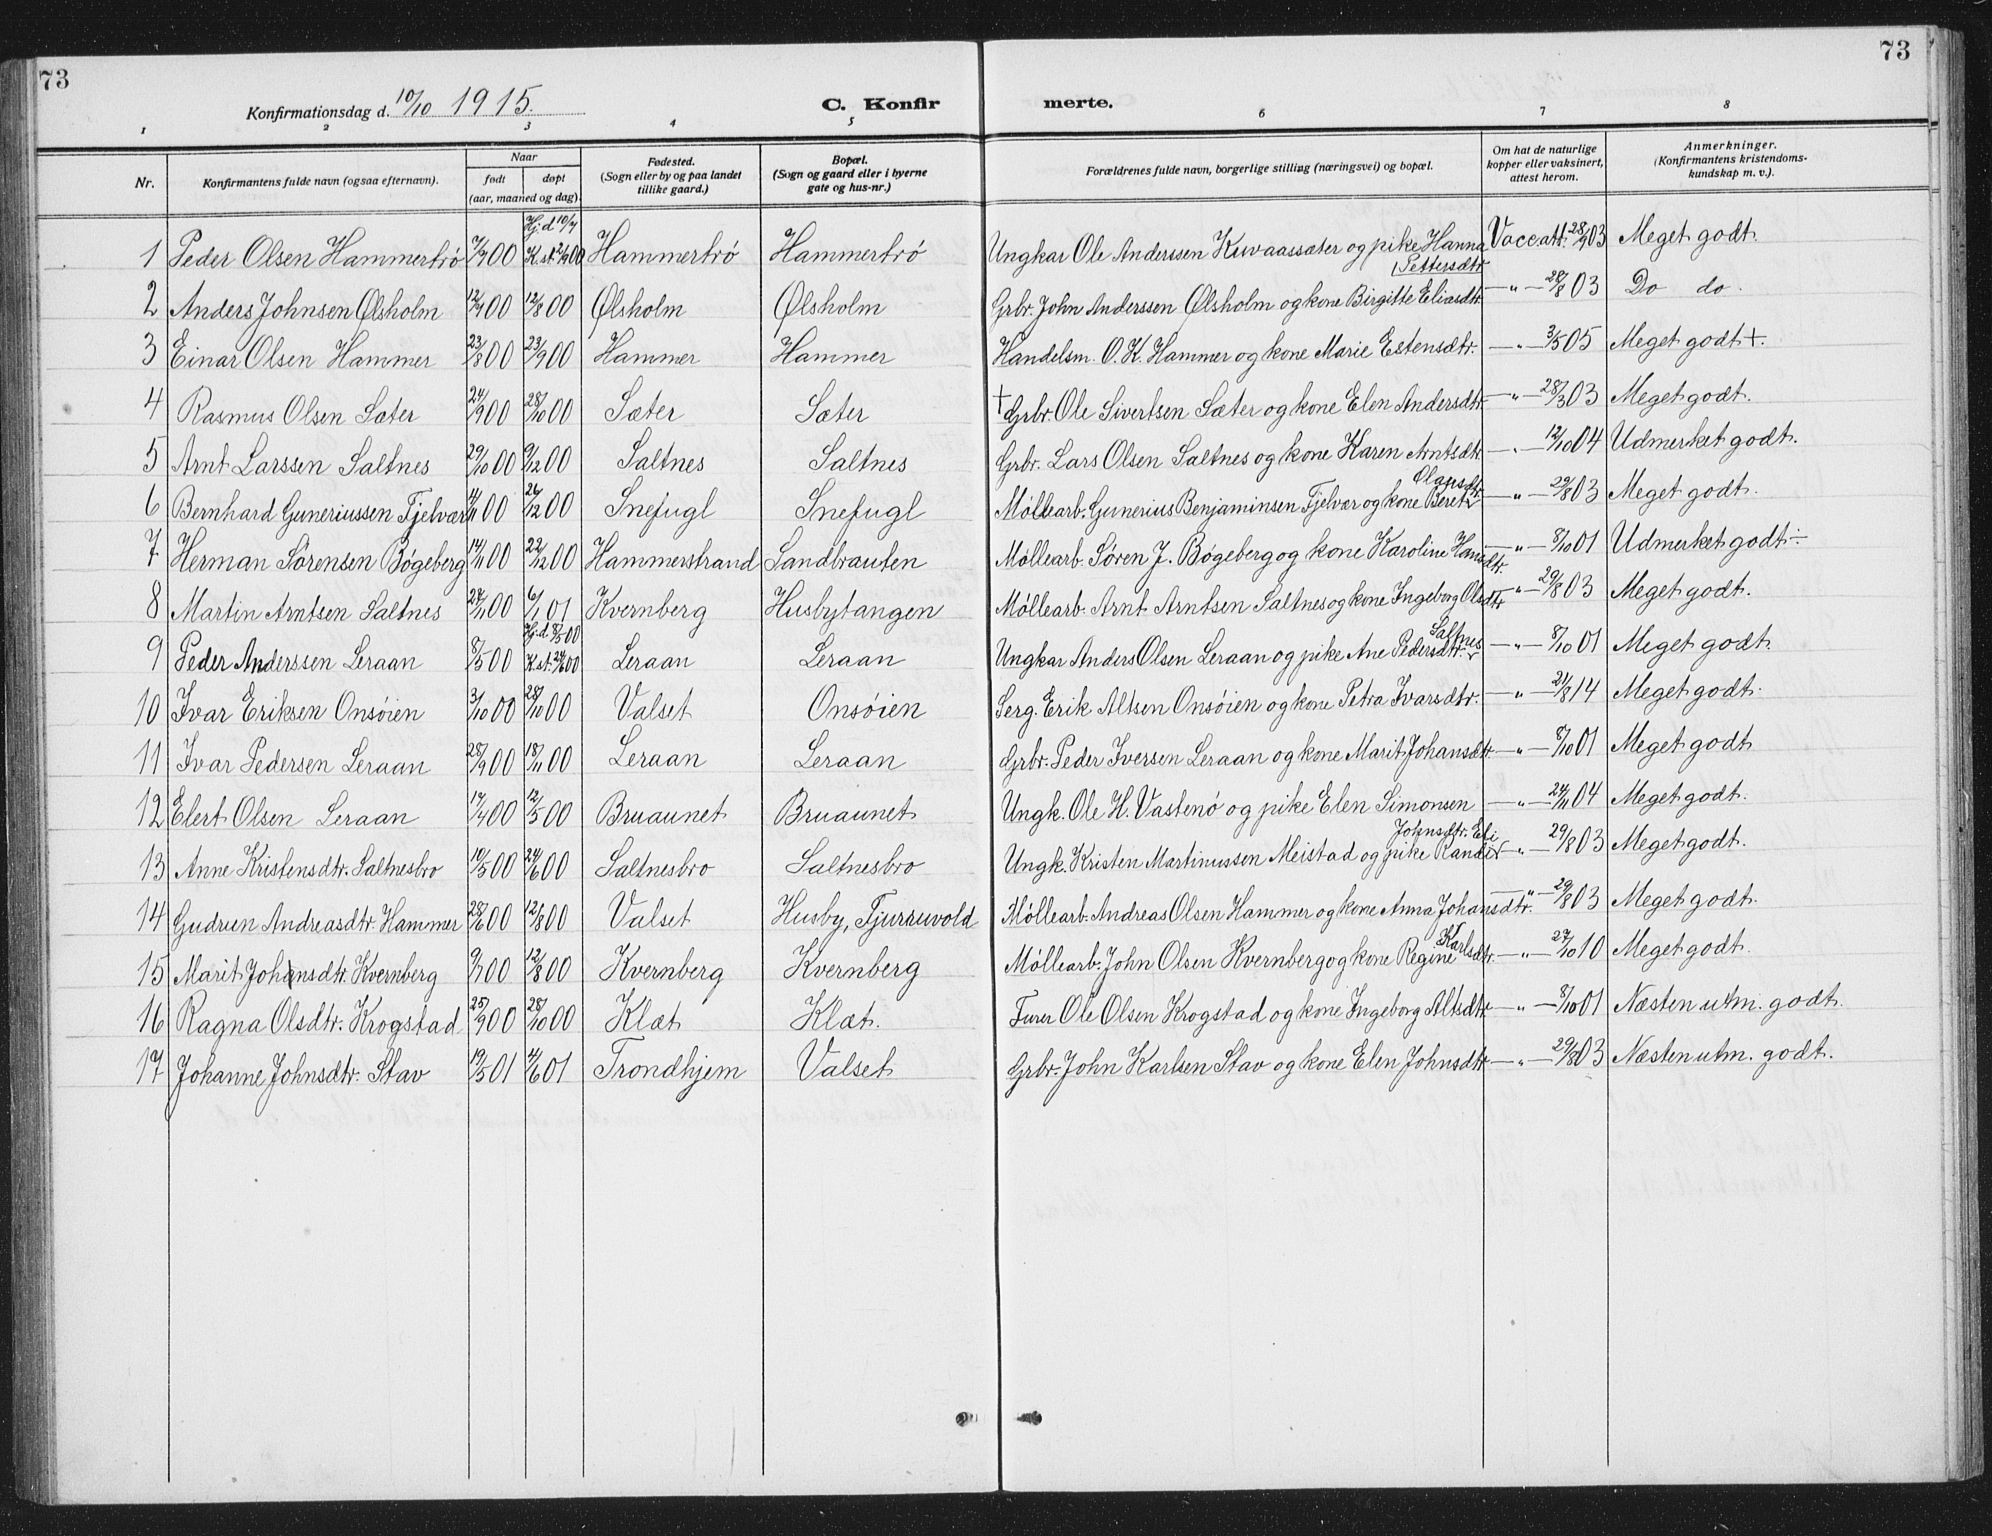 73
73
Konfirmationsdag d. 10/10 1915.
C. Konfir
merte.
1 2 3 4 5 6 7 8
Nr.
Konfirmantens fulde navn (ogsaa efternavn).
Naar
født
døpt
(aar, maaned og dag)
Fødested.
(Sogn eller by og paa landet
tillike gaard.)
Bopæl.
(Sogn og gaard eller i byerne
gate og hus-nr.)
Forældrenes fulde navn, borgerlige stilling (næringsvei) og bopæl.
Om hat de naturlige
kopper eller vaksinert,
attest herom.
Anmerkninger.
(Konfirmantens kristendoms-
kundskap m. v.).
1 Peder Olsen Hammerbrö 7/7 00 Hj. d. 10/7 K. st. 00 Hammerbrö Hammerbrö Ungkar Ole Anderssen og pike Hanna Pettersdtr. Vacc. att. 03 Meget godt.
2 Anders Johnsen Ølsholm 00 12/8 00 Ølsholm Ølsholm Grbr. John Anderssen Ølsholm og kone Birgitte Eliasdtr. —"— 28/8 03 Do do.
3 Einar Olsen Hammer 23/8 00 23/9 00 Hammer Hammer Handelsm. O. K. Hammer og kone Marie Estensdtr. —"— 3/5 05 Meget godt +.
4 Rasmus Olsen Sæter 24/9 00 28/10 00 Sæter Sæter + Grbr. Ole Sivertsen Sæter og kone Elen Andersdtr. —"— 28/3 03 Meget godt.
5 Arnt Larssen Saltnes 29/10 00 9/12 00 Saltnes Saltnes Grbr. Lars Olsen Saltnes og kone Karen Arntsdtr. —"— 12/10 04 Udmerket godt.
6 Bernhard Guneriussen Fjelvær 11/11 00 26/12 00 Snefugl Snefugl Møllearb. Gunerius Benjaminsen Fjelvær og kone Beret Olausdtr. —"— 29/8 03 Meget godt.
7 Herman Sörensen Bøgeberg 14/11 00 22/12 00 Hammerstrand Sandbrauten Møllearb. Søren J. Bøgeberg og kone Karoline Hansdtr. —"— 8/10 01 Udmerket godt ÷
8 Martin Arntsen Saltnes 00 6/1 01 Kvernberg Husbytangen Møllearb. Arnt Arntsen Saltnes og kone Ingeborg Olsdtr. —"— 29/8 03 Meget godt.
9 Peder Anderssen Leraan 8/5 00 Hj. d. 8/5 00 K. st. 24/6 00 Leraan Leraan Ungkar Anders Olsen Leraan og pike Ane Pedersdtr. Saltnes —"— 8/10 01 Meget godt.
10 Ivar Eriksen Onsöien 3/10 00 28/10 00 Valset Onsöien Serg. Erik Altsen Onsöien og kone Petra Ivarsdtr. —"— 21/8 14 Meget godt.
11 Ivar Pedersen Leraan 28/9 00 18/11 00 Leraan Leraan Grbr. Peder Iversen Leraan og kone Marit Johansdtr. —"— 8/10 01 Meget godt
12 Elert Olsen Leraan 17/4 00 12/5 00 Bruaunet Bruaunet Ungk. Ole H. Vastenö og pike Elen Simonsen —"— 24/11 04 Meget godt.
13 Anne Kristensdtr. Saltnesbro 10/5 00 24/6 00 Saltnesbro Saltnesbro Ungk. Kristen Martinussen Meistad og pike Randi Johnsdtr. Eli —"— 29/8 03 Meget godt.
14 Gudrun Andreasdtr. Hammer 28/6 00 12/8 00 Valset Husby, Tjuruvold Møllearb. Andreas Olsen Hammer og kone Anna Johansdtr. —"— 29/8 03 Meget godt.
15 Marit Johnsdtr. Kvernberg 9/7 00 12/8 00 Kvernberg Kvernberg Møllearb. John Olsen Kvernberg og kone Regine Karlsdtr. —"— 27/10 10 Meget godt.
16 Ragna Olsdtr. Krogstad 25/9 00 28/10 00 Klæt Klæt. Furer Ole Olsen Krogstad og kone Ingeborg Altsdtr. —"— 8/10 01 Næsten utm. godt.
17 Johanne Johnsdtr. Stav 19/5 01 4/6 01 Trondhjem Valset Grbr. John Karlsen Stav og kone Elen Johnsdtr. —"— 29/8 03 Næsten utm. godt.